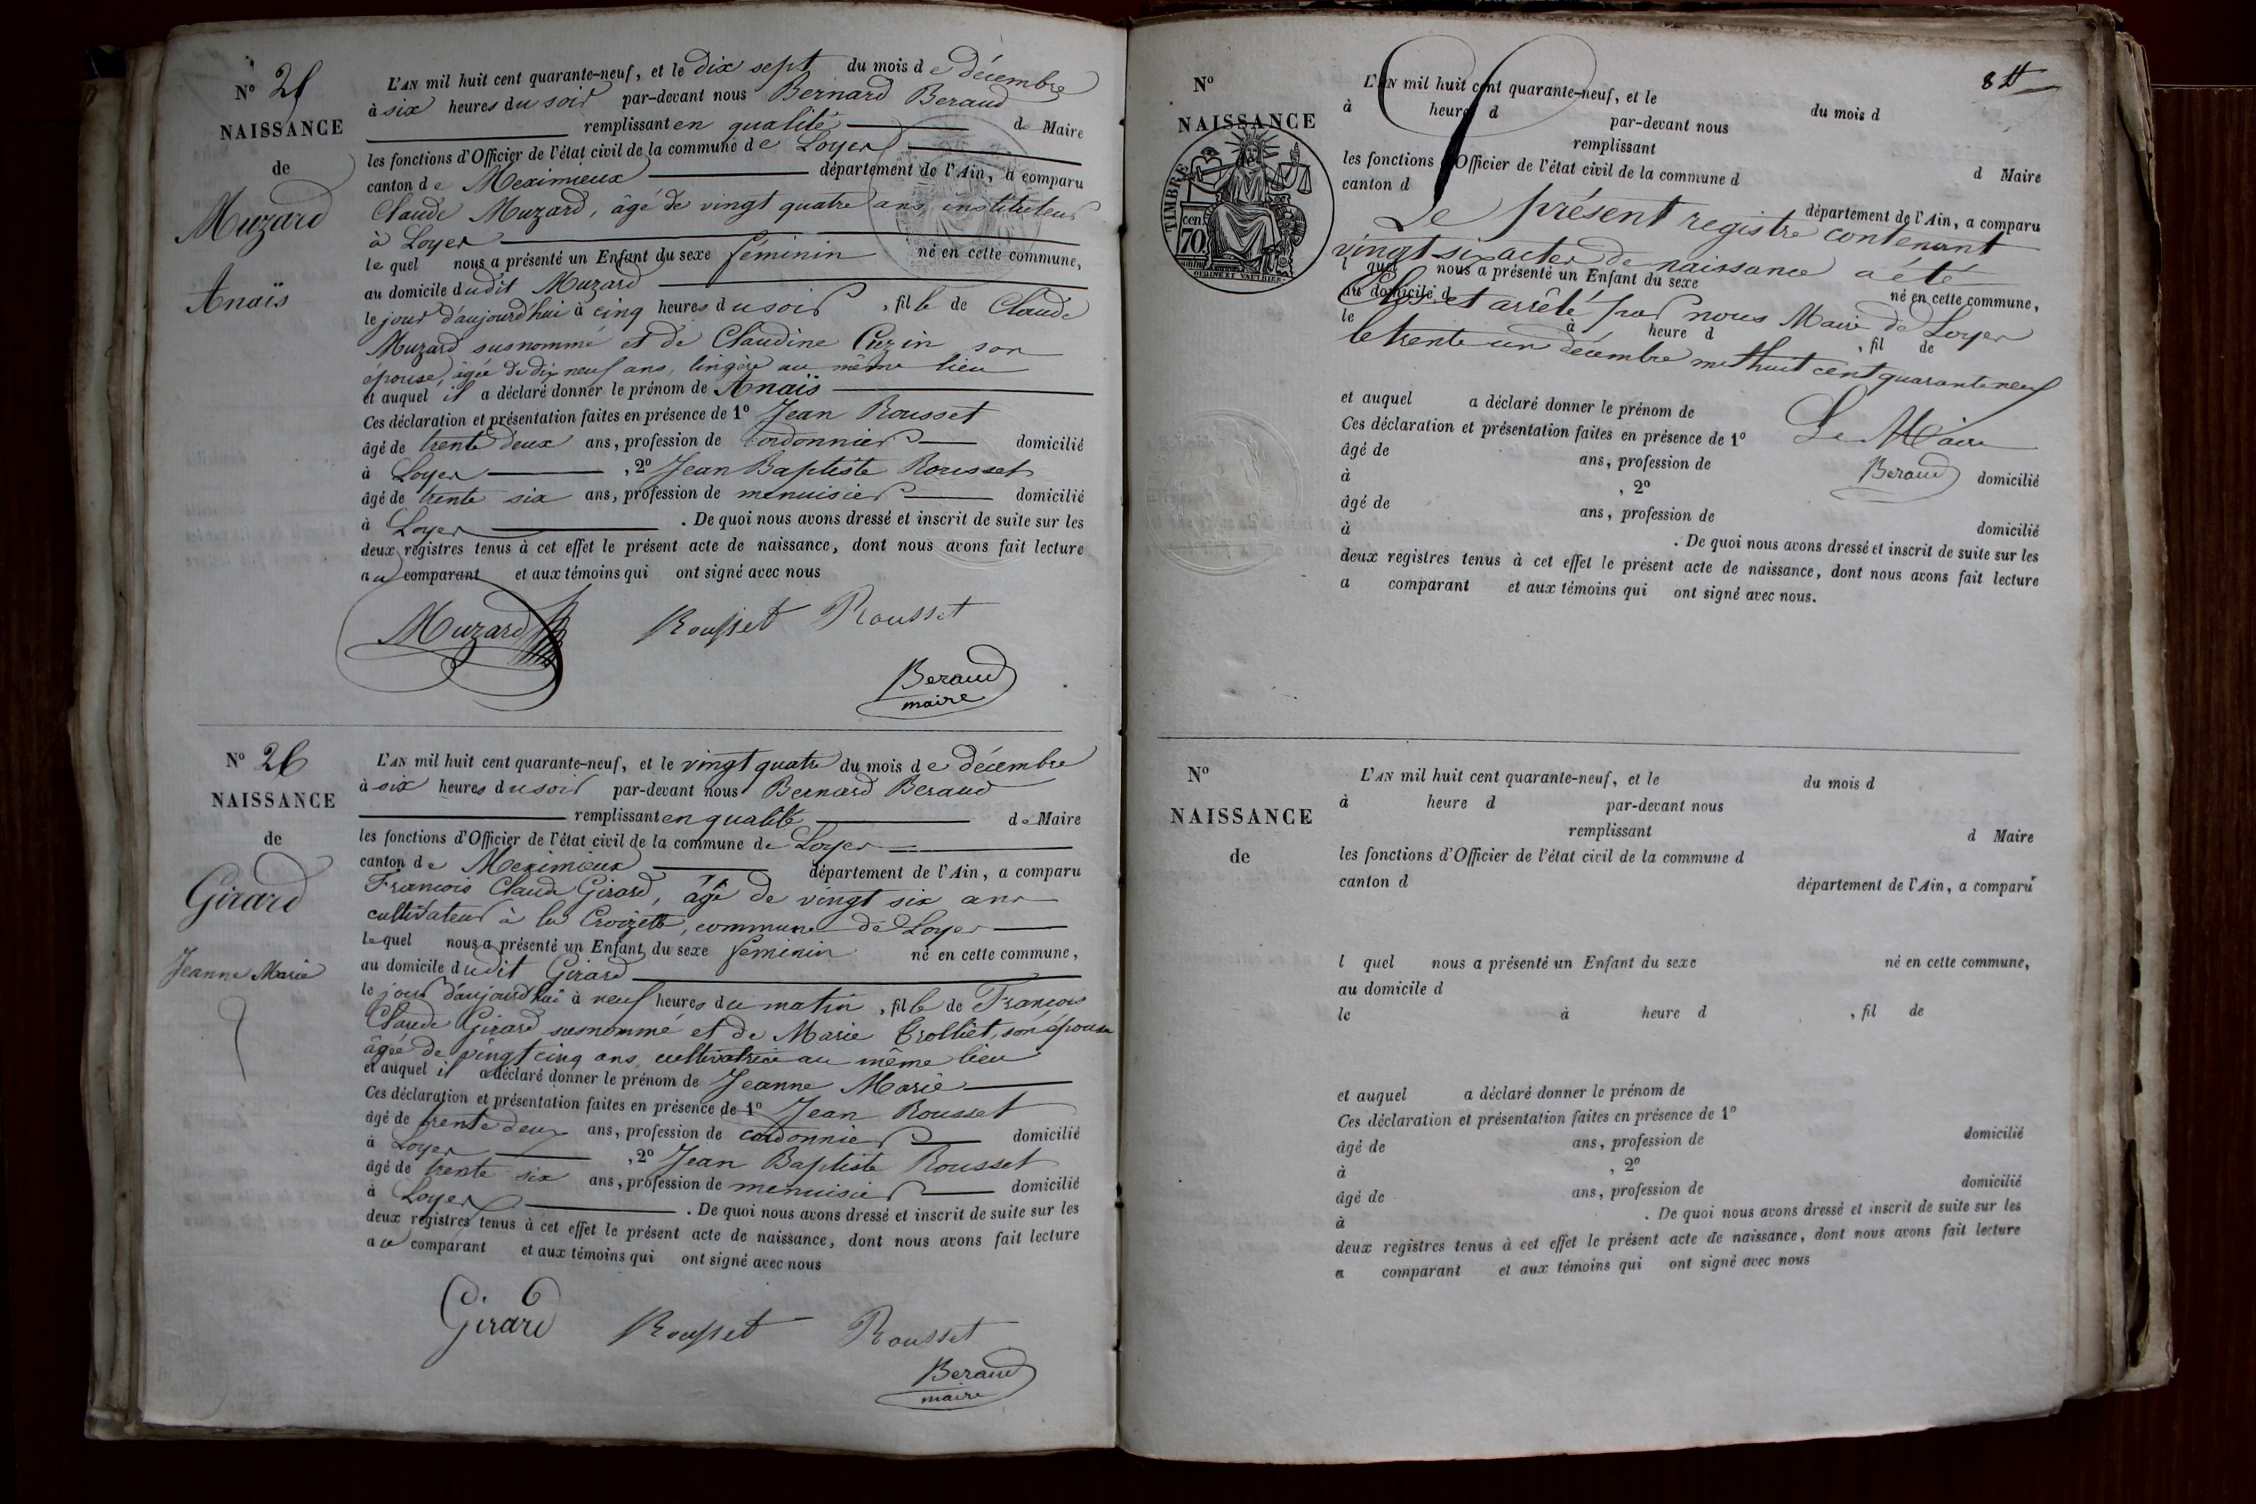 Nº 25
NAISSANCE
de
Muzard
Anaïs
L'AN mil huit cent quarante-neuf, et le dix sept du mois de décembre
à six heures du soir par-devant nous Bernard Beraud
remplissant en qualité de Maire
les fonctions d'Officier de l'état civil de la commune de Loyes
canton de Meximieux département de l'Ain, a comparu
Claude Muzard, âgé de vingt quatre ans, instituteur
à Loyes
le quel nous a présenté un Enfant du sexe féminin né en cette commune,
au domicile dudit Muzard
le jour d'aujourd'hui à cinq heures du soir, fille de Claude
Muzard susnommé et de Claudine Cuzin son
épouse, agée de dix neuf ans, lingère au même lieu
et auquel il a déclaré donner le prénom de Anaïs
Ces déclaration et présentation faites en présence de 1º Jean Rousset
âgé de trente deux ans, profession de cordonnier domicilié
à Loyes, 2º Jean Baptiste Rousset
âgé de trente six ans, profession de menuisier domicilié
à Loyes. De quoi nous avons dressé et inscrit de suite sur les
deux registres tenus à cet effet le présent acte de naissance, dont nous avons fait lecture
au comparant et aux témoins qui ont signé avec nous
Muzard Rousset Rousset
Beraud
maire
Nº 26
NAISSANCE
de
Girard
Jeanne Marie
L'AN mil huit cent quarante-neuf, et le vingt quatre du mois de décembre
à six heures du soir par-devant nous Bernard Beraud
remplissant en qualité de Maire
les fonctions d'Officier de l'état civil de la commune de Loyes
canton de Meximieux département de l'Ain, a comparu
François Claude Girard, âgé de vingt six ans
cultivateur à la Croizette, commune de Loyes
le quel nous a présenté un Enfant du sexe féminin né en cette commune,
au domicile dudit Girard
le jour d'aujourd'hui à neuf heures du matin, fille de François
Claude Girard susnommé et de Marie Trolliet, son épouse
âgée de vingt cinq ans, cultivatrice au même lieu
et auquel il a déclaré donner le prénom de Jeanne Marie
Ces déclaration et présentation faites en présence de 1º Jean Rousset
âgé de trente deux ans, profession de cordonnier domicilié
à Loyes, 2º Jean Baptiste Rousset
âgé de trente six ans, profession de menuisier domicilié
à Loyes. De quoi nous avons dressé et inscrit de suite sur les
deux registres tenus à cet effet le présent acte de naissance, dont nous avons fait lecture
au comparant et aux témoins qui ont signé avec nous
Girard Rousset Rousset
Beraud
maire
Nº
NAISSANCE
TIMBRE
70 cen
L'AN mil huit cent quarante-neuf, et le du mois d
à heure d par-devant nous
remplissant d Maire
les fonctions d'Officier de l'état civil de la commune d
canton d département de l'Ain, a comparu
Le présent registre contenant
vingt six actes de naissance a été
l quel nous a présenté un Enfant du sexe né en cette commune,
au domicile d
Clos et arrêté par nous Maire de Loyes
le à heure d, fil de
le trente un décembre mil huit cent quarante neuf
et auquel a déclaré donner le prénom de
Le Maire
Ces déclaration et présentation faites en présence de 1º
âgé de ans, profession de domicilié
Beraud
à, 2º
âgé de ans, profession de domicilié
à. De quoi nous avons dressé et inscrit de suite sur les
deux registres tenus à cet effet le présent acte de naissance, dont nous avons fait lecture
a comparant et aux témoins qui ont signé avec nous.
Nº
NAISSANCE
de
L'AN mil huit cent quarante-neuf, et le du mois d
à heure d par-devant nous
remplissant d Maire
les fonctions d'Officier de l'état civil de la commune d
canton d département de l'Ain, a comparu
l quel nous a présenté un Enfant du sexe né en cette commune,
au domicile d
le à heure d, fil de
et auquel a déclaré donner le prénom de
Ces déclaration et présentation faites en présence de 1º
âgé de ans, profession de domicilié
à, 2º
âgé de ans, profession de domicilié
à. De quoi nous avons dressé et inscrit de suite sur les
deux registres tenus à cet effet le présent acte de naissance, dont nous avons fait lecture
a comparant et aux témoins qui ont signé avec nous